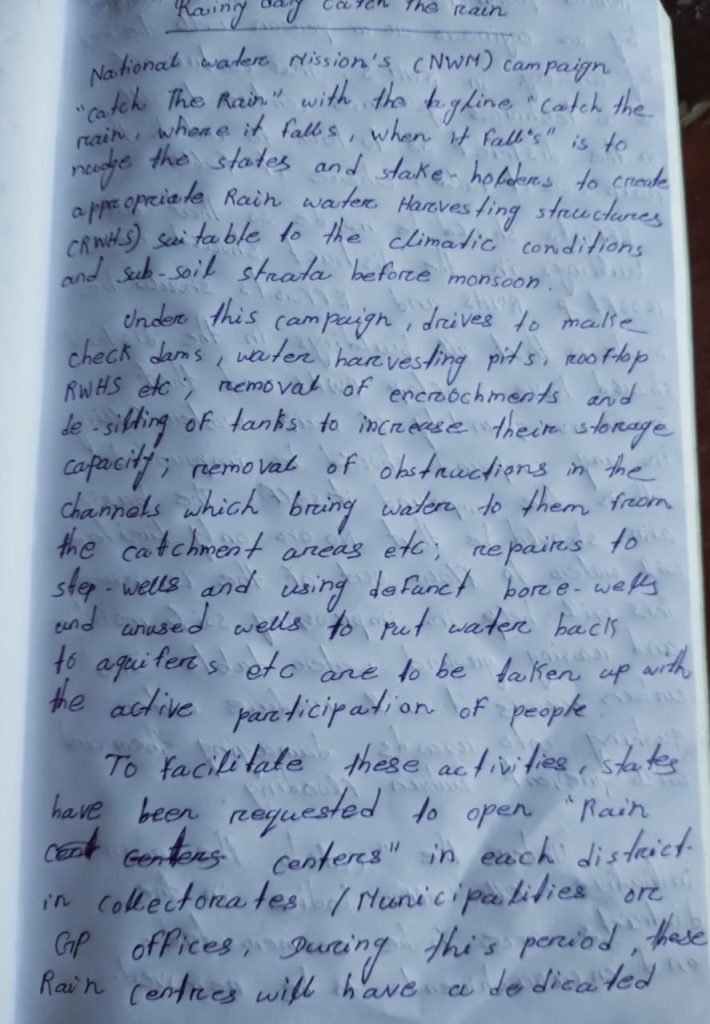 Rainy day catch the rain
National water Mission's (NWM) campaign
"catch The Rain" with the tagline "Catch the
rain, where it falls, when it fall's" is to
nudge the states and stake-holders to create
appropriate Rain water Harvesting structures
(RWHS) suitable to the climatic conditions
and sub-soil strata before monsoon.
Under this campaign, drives to make
check dams, water harvesting pits, rooftop
RWHS etc; removal of encrochments and
de-silting of tanks to increase their storage
capacity; removal of obstructions in the
channels which bring water to them from
the catchment areas etc; repairs to
step-wells and using defunct bore-wells
and unused wells to put water back
to aquifers etc are to be taken up with
the active participation of people.
To facilitate these activities, states
have been requested to open "Rain
centers" in each district-
in collectorates / Municipalities or
GP offices, During this period, these
Rain centres will have a dedicated